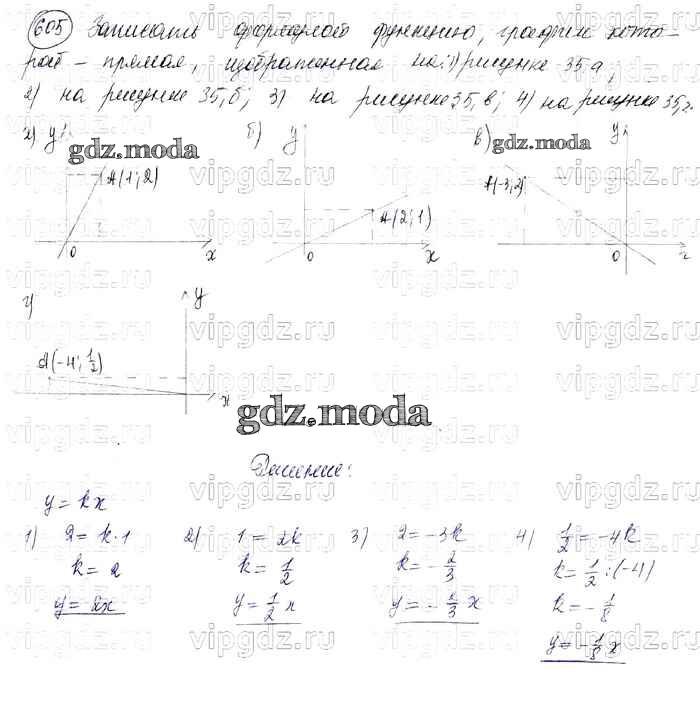 605 Записать формулой функцию, график кото-
рой - прямая, изображенная на: 1) рисунке 35,а;
2) на рисунке 35,б; 3) на рисунке 35,в; 4) на рисунке 35,г.
а) y б) y в) y
gdz.moda gdz.moda
A(1;2) A(-3;2)
A(2;1)
0 x 0 x 0 x
г) y
A(-4; 1/2)
x
gdz.moda
Решение:
y = kx
1) 2 = k·1 2) 1 = 2k 3) 2 = -3k 4) 1/2 = -4k
k = 2 k = 1/2 k = -2/3 k = 1/2 :(-4)
y = 2x y = 1/2 x y = -2/3 x k = -1/8
y = -1/8 x
vipgdz.ru